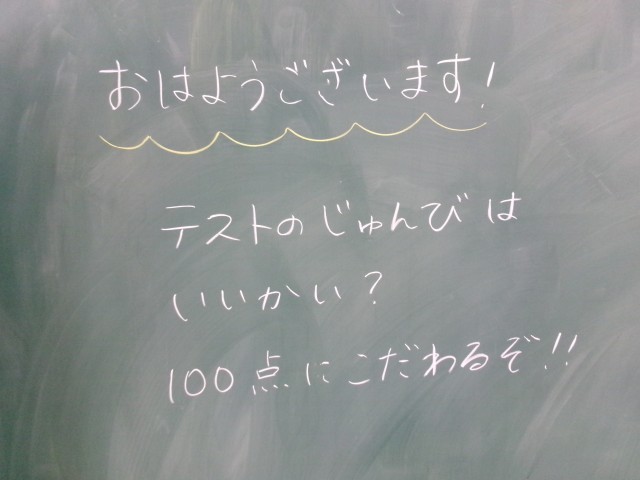 おはようございます!
テストのじゅんびは
いいかい?
100点にこだわるぞ!!